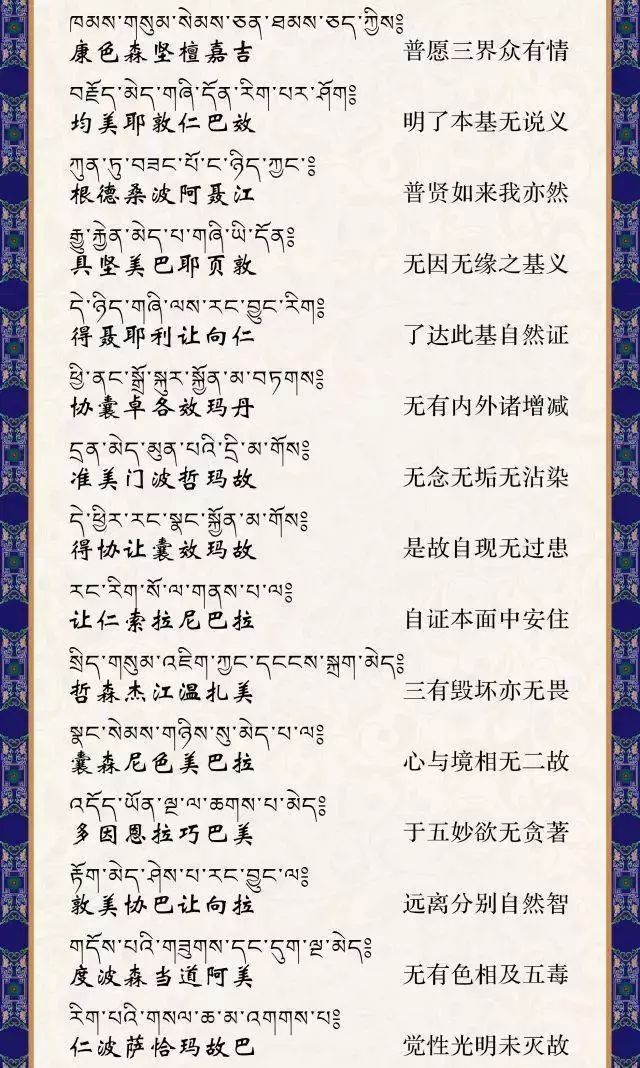 ཁམས་གསུམ་སེམས་ཅན་ཐམས་ཅད་ཀྱིས༔
康色森坚檀嘉吉 普愿三界众有情
བརྗོད་མེད་གཞི་དོན་རིག་པར་ཤོག༔
均美耶敦仁巴效 明了本基无说义
ཀུན་ཏུ་བཟང་པོ་ང་ཉིད་ཀྱང་༔
根德桑波阿聂江 普贤如来我亦然
རྒྱུ་རྐྱེན་མེད་པ་གཞི་ཡི་དོན༔
具坚美巴耶页敦 无因无缘之基义
དེ་ཉིད་གཞི་ལས་རང་བྱུང་རིག༔
得聂耶利让向仁 了达此基自然证
ཕྱི་ནང་སྒྲོ་སྐུར་སྐྱོན་མ་བཏགས༔
协囊卓各效玛丹 无有内外诸增减
དྲན་མེད་མུན་པའི་དྲི་མ་གོས༔
准美门波哲玛故 无念无垢无沾染
དེ་ཕྱིར་རང་སྣང་སྐྱོན་མ་གོས༔
得协让囊效玛故 是故自现无过患
རང་རིག་སོ་ལ་གནས་པ་ལ༔
让仁索拉尼巴拉 自证本面中安住
སྲིད་གསུམ་འཇིག་ཀྱང་དངངས་སྐྲག་མེད༔
哲森杰江温扎美 三有毁坏亦无畏
སྣང་སེམས་གཉིས་སུ་མེད་པ་ལ༔
囊森尼色美巴拉 心与境相无二故
འདོད་ཡོན་ལྔ་ལ་ཆགས་པ་མེད༔
多因恩拉巧巴美 于五妙欲无贪著
རྟོག་མེད་ཤེས་པ་རང་བྱུང་ལ༔
敦美协巴让向拉 远离分别自然智
གདོས་པའི་གཟུགས་དང་དུག་ལྔ་མེད༔
度波森当道阿美 无有色相及五毒
རིག་པའི་གསལ་ཆ་མ་འགགས་པ༔
仁波萨恰玛故巴 觉性光明未灭故